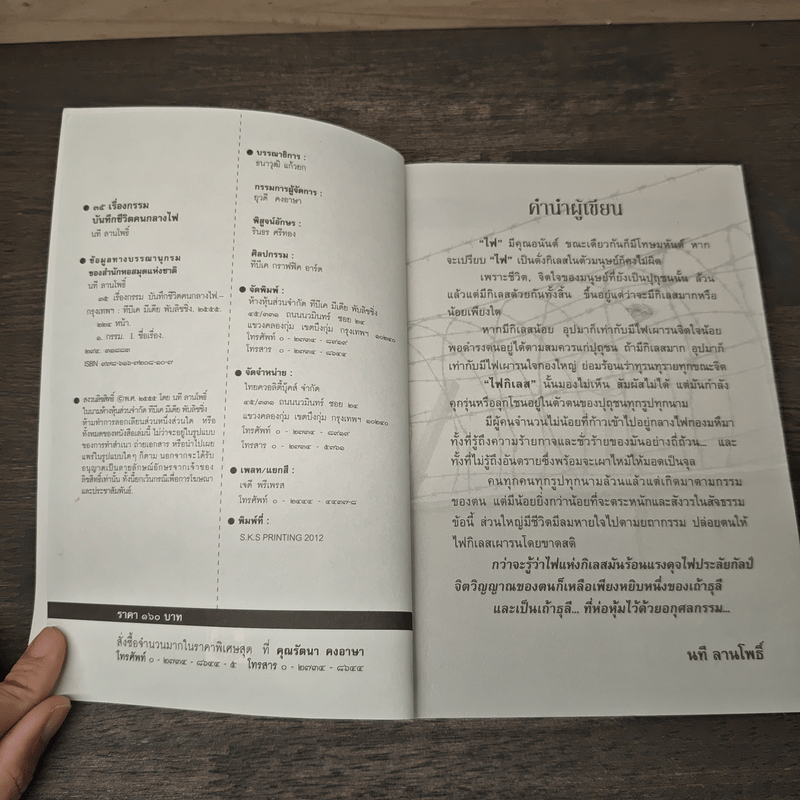 ● ๓๕ เรื่องกรรม
บันทึกชีวิตคนกลางไฟ
นที ลานโพธิ์
● ข้อมูลทางบรรณานุกรม
ของสำนักหอสมุดแห่งชาติ
นที ลานโพธิ์
๓๕ เรื่องกรรม บันทึกชีวิตคนกลางไฟ.--
กรุงเทพฯ : ทีบีเค มีเดีย พับลิชชิ่ง, ๒๕๕๕.
๒๒๔ หน้า.
๑. กรรม. I. ชื่อเรื่อง.
๒๙๔. ๓๑๘๘๓
ISBN ๙๗๘-๖๑๖-๗๒๐๘-๑๐-๗
● สงวนลิขสิทธิ์ ©พ.ศ. ๒๕๕๕ โดย นที ลานโพธิ์
ในนามห้างหุ้นส่วนจำกัด ทีบีเค มีเดีย พับลิชชิ่ง
ห้ามทำการลอกเลียนส่วนหนึ่งส่วนใด หรือ
ทั้งหมดของหนังสือเล่มนี้ ไม่ว่าจะอยู่ในรูปแบบ
ของการทำสำเนา ถ่ายเอกสาร หรือนำไปเผย
แพร่ในรูปแบบใดๆ ก็ตาม นอกจากจะได้รับ
อนุญาตเป็นลายลักษณ์อักษรจากเจ้าของ
ลิขสิทธิ์เท่านั้น ทั้งนี้ยกเว้นกรณีเพื่อการโฆษณา
และประชาสัมพันธ์.
● บรรณาธิการ :
ธนาวุฒิ แก้วยก
กรรมการผู้จัดการ :
ยุวดี คงอาษา
พิสูจน์อักษร :
รินธร ศรีทอง
ศิลปกรรม :
ทีบีเค กราฟฟิค อาร์ต
● จัดพิมพ์ :
ห้างหุ้นส่วนจำกัด ทีบีเค มีเดีย พับลิชชิ่ง
๔๕/๓๓๑ ถนนนวมินทร์ ซอย ๒๔
แขวงคลองกุ่ม เขตบึงกุ่ม กรุงเทพฯ ๑๐๒๔๐
โทรศัพท์ ๐ - ๒๗๓๔ - ๘๙๑๙
โทรสาร ๐ - ๒๗๓๔ - ๘๖๔๔
● จัดจำหน่าย :
ไทยควอลิตี้บุ๊คส์ จำกัด
๔๕/๓๓๑ ถนนนวมินทร์ ซอย ๒๔
แขวงคลองกุ่ม เขตบึงกุ่ม กรุงเทพฯ ๑๐๒๔๐
โทรศัพท์ ๐ - ๒๗๓๔ - ๘๙๑๙
โทรสาร ๐ - ๒๗๓๔ - ๕๓๖๑
● เพลท/แยกสี :
เจดี พรีเพรส
โทรศัพท์ ๐ - ๒๔๔๔ - ๔๔๓๗-๘
● พิมพ์ที่ :
S.K.S PRINTING 2012
ราคา ๑๖๐ บาท
สั่งซื้อจำนวนมากในราคาพิเศษสุด ที่ คุณรัตนา คงอาษา
โทรศัพท์ ๐ - ๒๗๓๔ - ๘๖๔๔ - ๕ โทรสาร ๐ - ๒๗๓๔ - ๘๖๔๔
คำนำผู้เขียน
"ไฟ" มีคุณอนันต์ ขณะเดียวกันก็มีโทษมหันต์ หาก
จะเปรียบ "ไฟ" เป็นดั่งกิเลสในตัวมนุษย์ก็คงไม่ผิด
เพราะชีวิต, จิตใจของมนุษย์ที่ยังเป็นปุถุชนนั้น ล้วน
แล้วแต่มีกิเลสด้วยกันทั้งสิ้น ขึ้นอยู่แต่ว่าจะมีกิเลสมากหรือ
น้อยเพียงใด
หากมีกิเลสน้อย อุปมาก็เท่ากับมีไฟเผารนจิตใจน้อย
พอดำรงตนอยู่ได้ตามสมควรแก่ปุถุชน ถ้ามีกิเลสมาก อุปมาก็
เท่ากับมีไฟเผารนใจกองใหญ่ ย่อมร้อนเร่าทุรนทุรายทุกขณะจิต
"ไฟกิเลส" นั้นมองไม่เห็น สัมผัสไม่ได้ แต่มันกำลัง
คุกรุ่นหรือลุกโชนอยู่ในตัวตนของปุถุชนทุกรูปทุกนาม
มีผู้คนจำนวนไม่น้อยที่ก้าวเข้าไปอยู่กลางไฟกองมหึมา
ทั้งที่รู้ถึงความร้ายกาจและชั่วร้ายของมันอย่างถี่ถ้วน... และ
ทั้งที่ไม่รู้ถึงอันตรายซึ่งพร้อมจะเผาไหม้ให้มอดเป็นจุล
คนทุกคนทุกรูปทุกนามล้วนแล้วแต่เกิดมาตามกรรม
ของตน แต่มีน้อยยิ่งกว่าน้อยที่จะตระหนักและสังวรในสัจธรรม
ข้อนี้ ส่วนใหญ่มีชีวิตมีลมหายใจไปตามยถากรรม ปล่อยตนให้
ไฟกิเลสเผารนโดยขาดสติ
กว่าจะรู้ว่าไฟแห่งกิเลสมันร้อนแรงดุจไฟประลัยกัลป์
จิตวิญญาณของตนก็เหลือเพียงหยิบหนึ่งของเถ้าธุลี
และเป็นเถ้าธุลี... ที่ห่อหุ้มไว้ด้วยอกุศลกรรม...
นที ลานโพธิ์